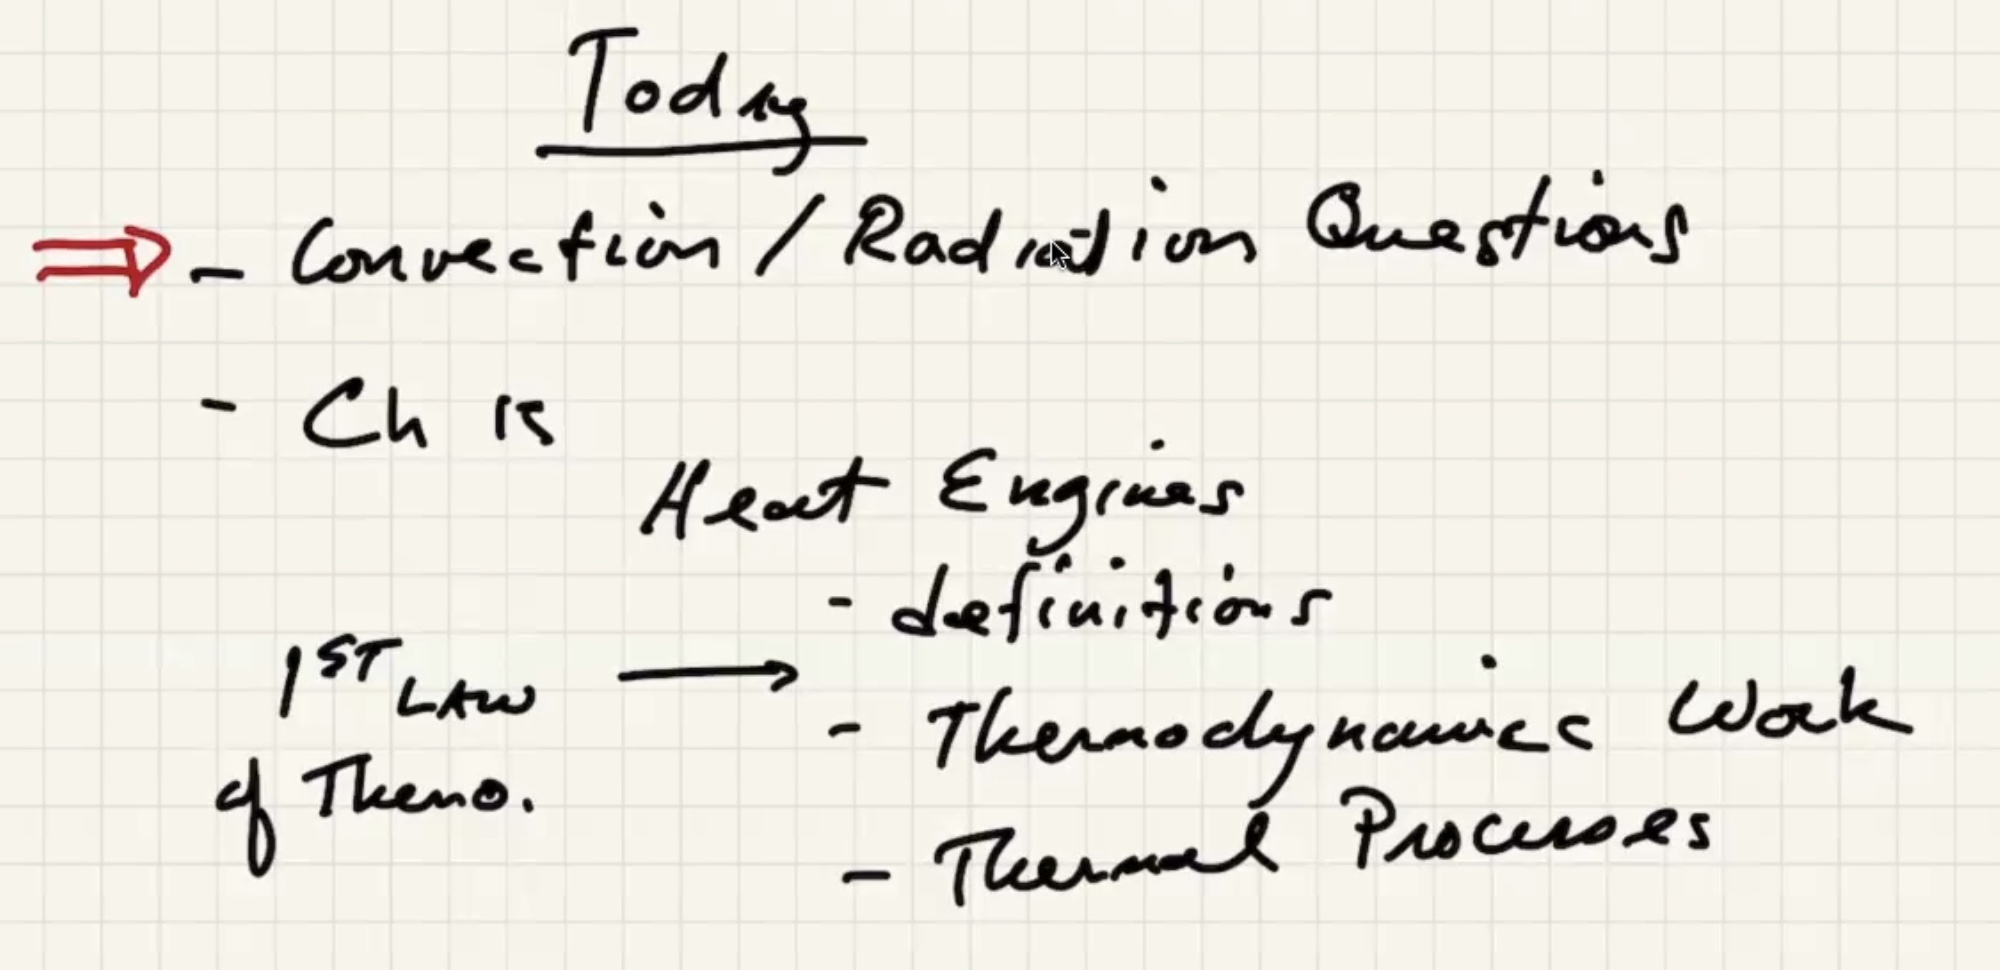 Today
⇒ - Convection / Radiation Questions
- Ch 15
Heat Engines
- definitions
1ST LAW →
of Thermo.
- Thermodynamics Work
- Thermal Processes